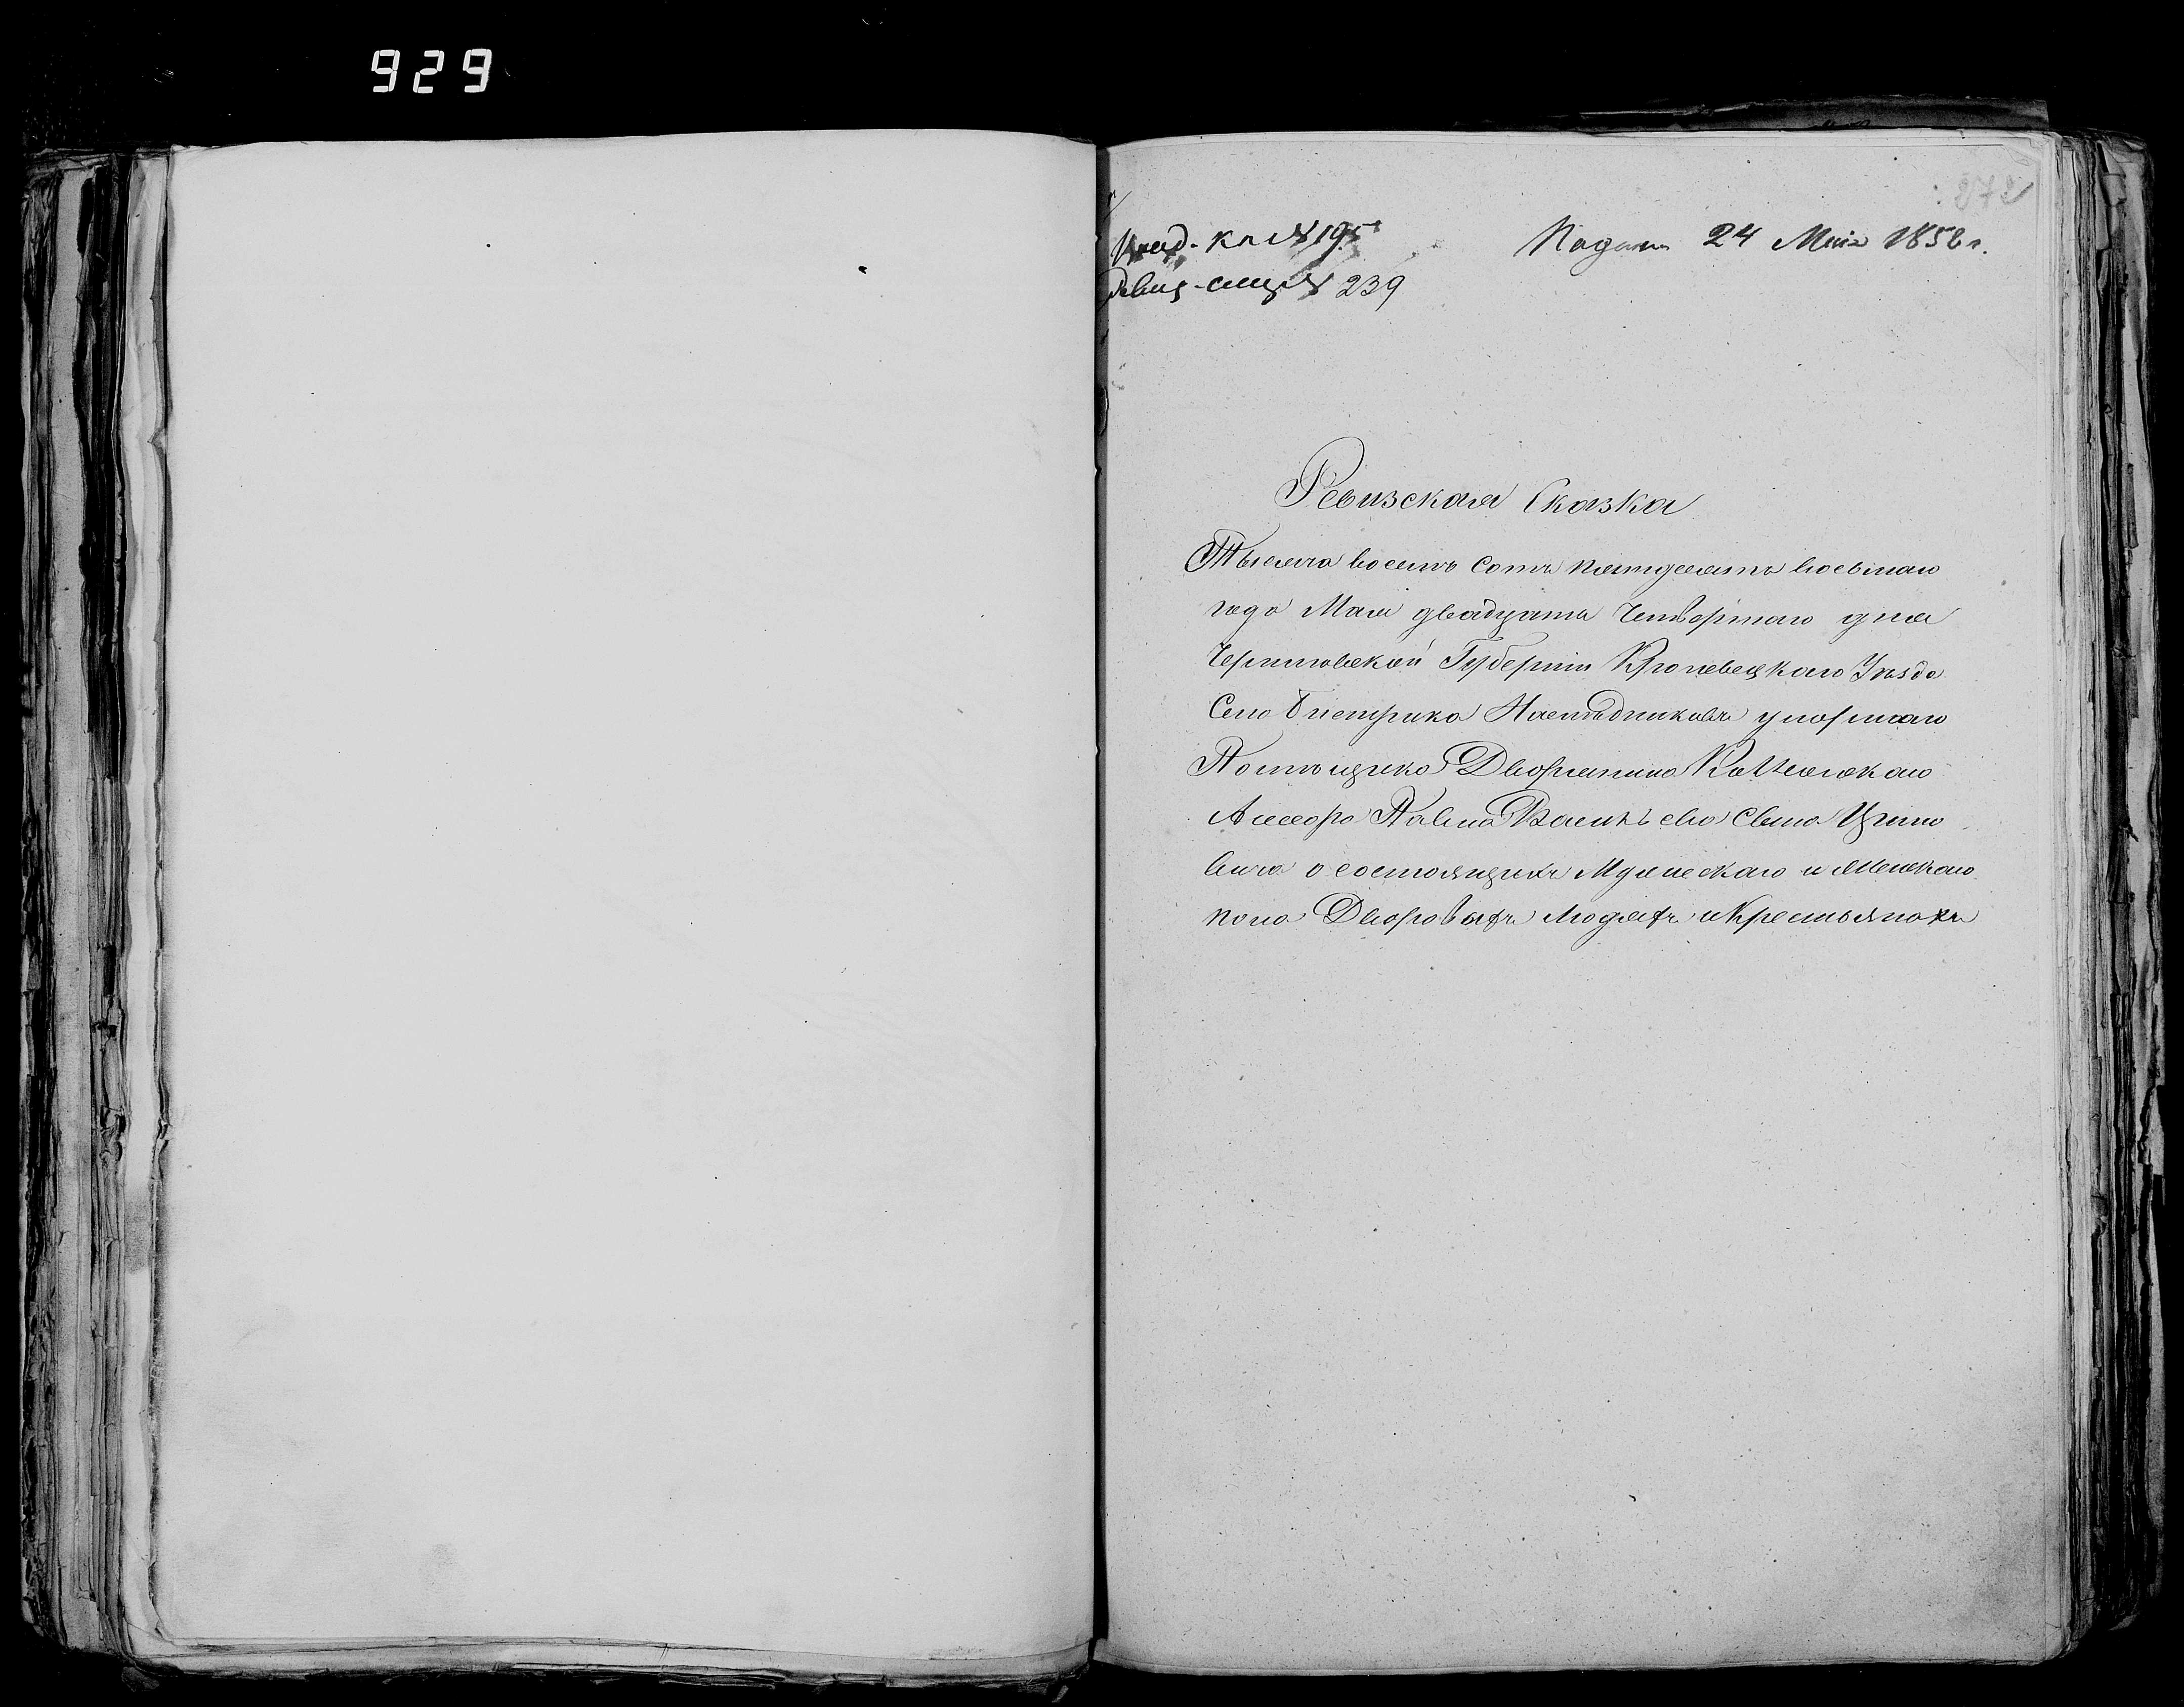 929
272
кн № 195
Подана 24 Мая 1858 г.
№ 239
Ревизская Сказка
Тысяча восемь сотъ пятдесятъ восьмаго
года Мая двадцать Четвертаго дня
Черниговской Губерніи Кролевецкаго Уѣзда
Села Быстрика Наслѣдниковъ умершаго
Помѣщика Дворянина Коллежскаго
Асессора Павла Василіева сына
вича о состоящихъ Мужескаго и Женскаго
пола Дворовыхъ людяхъ и Крестьянахъ